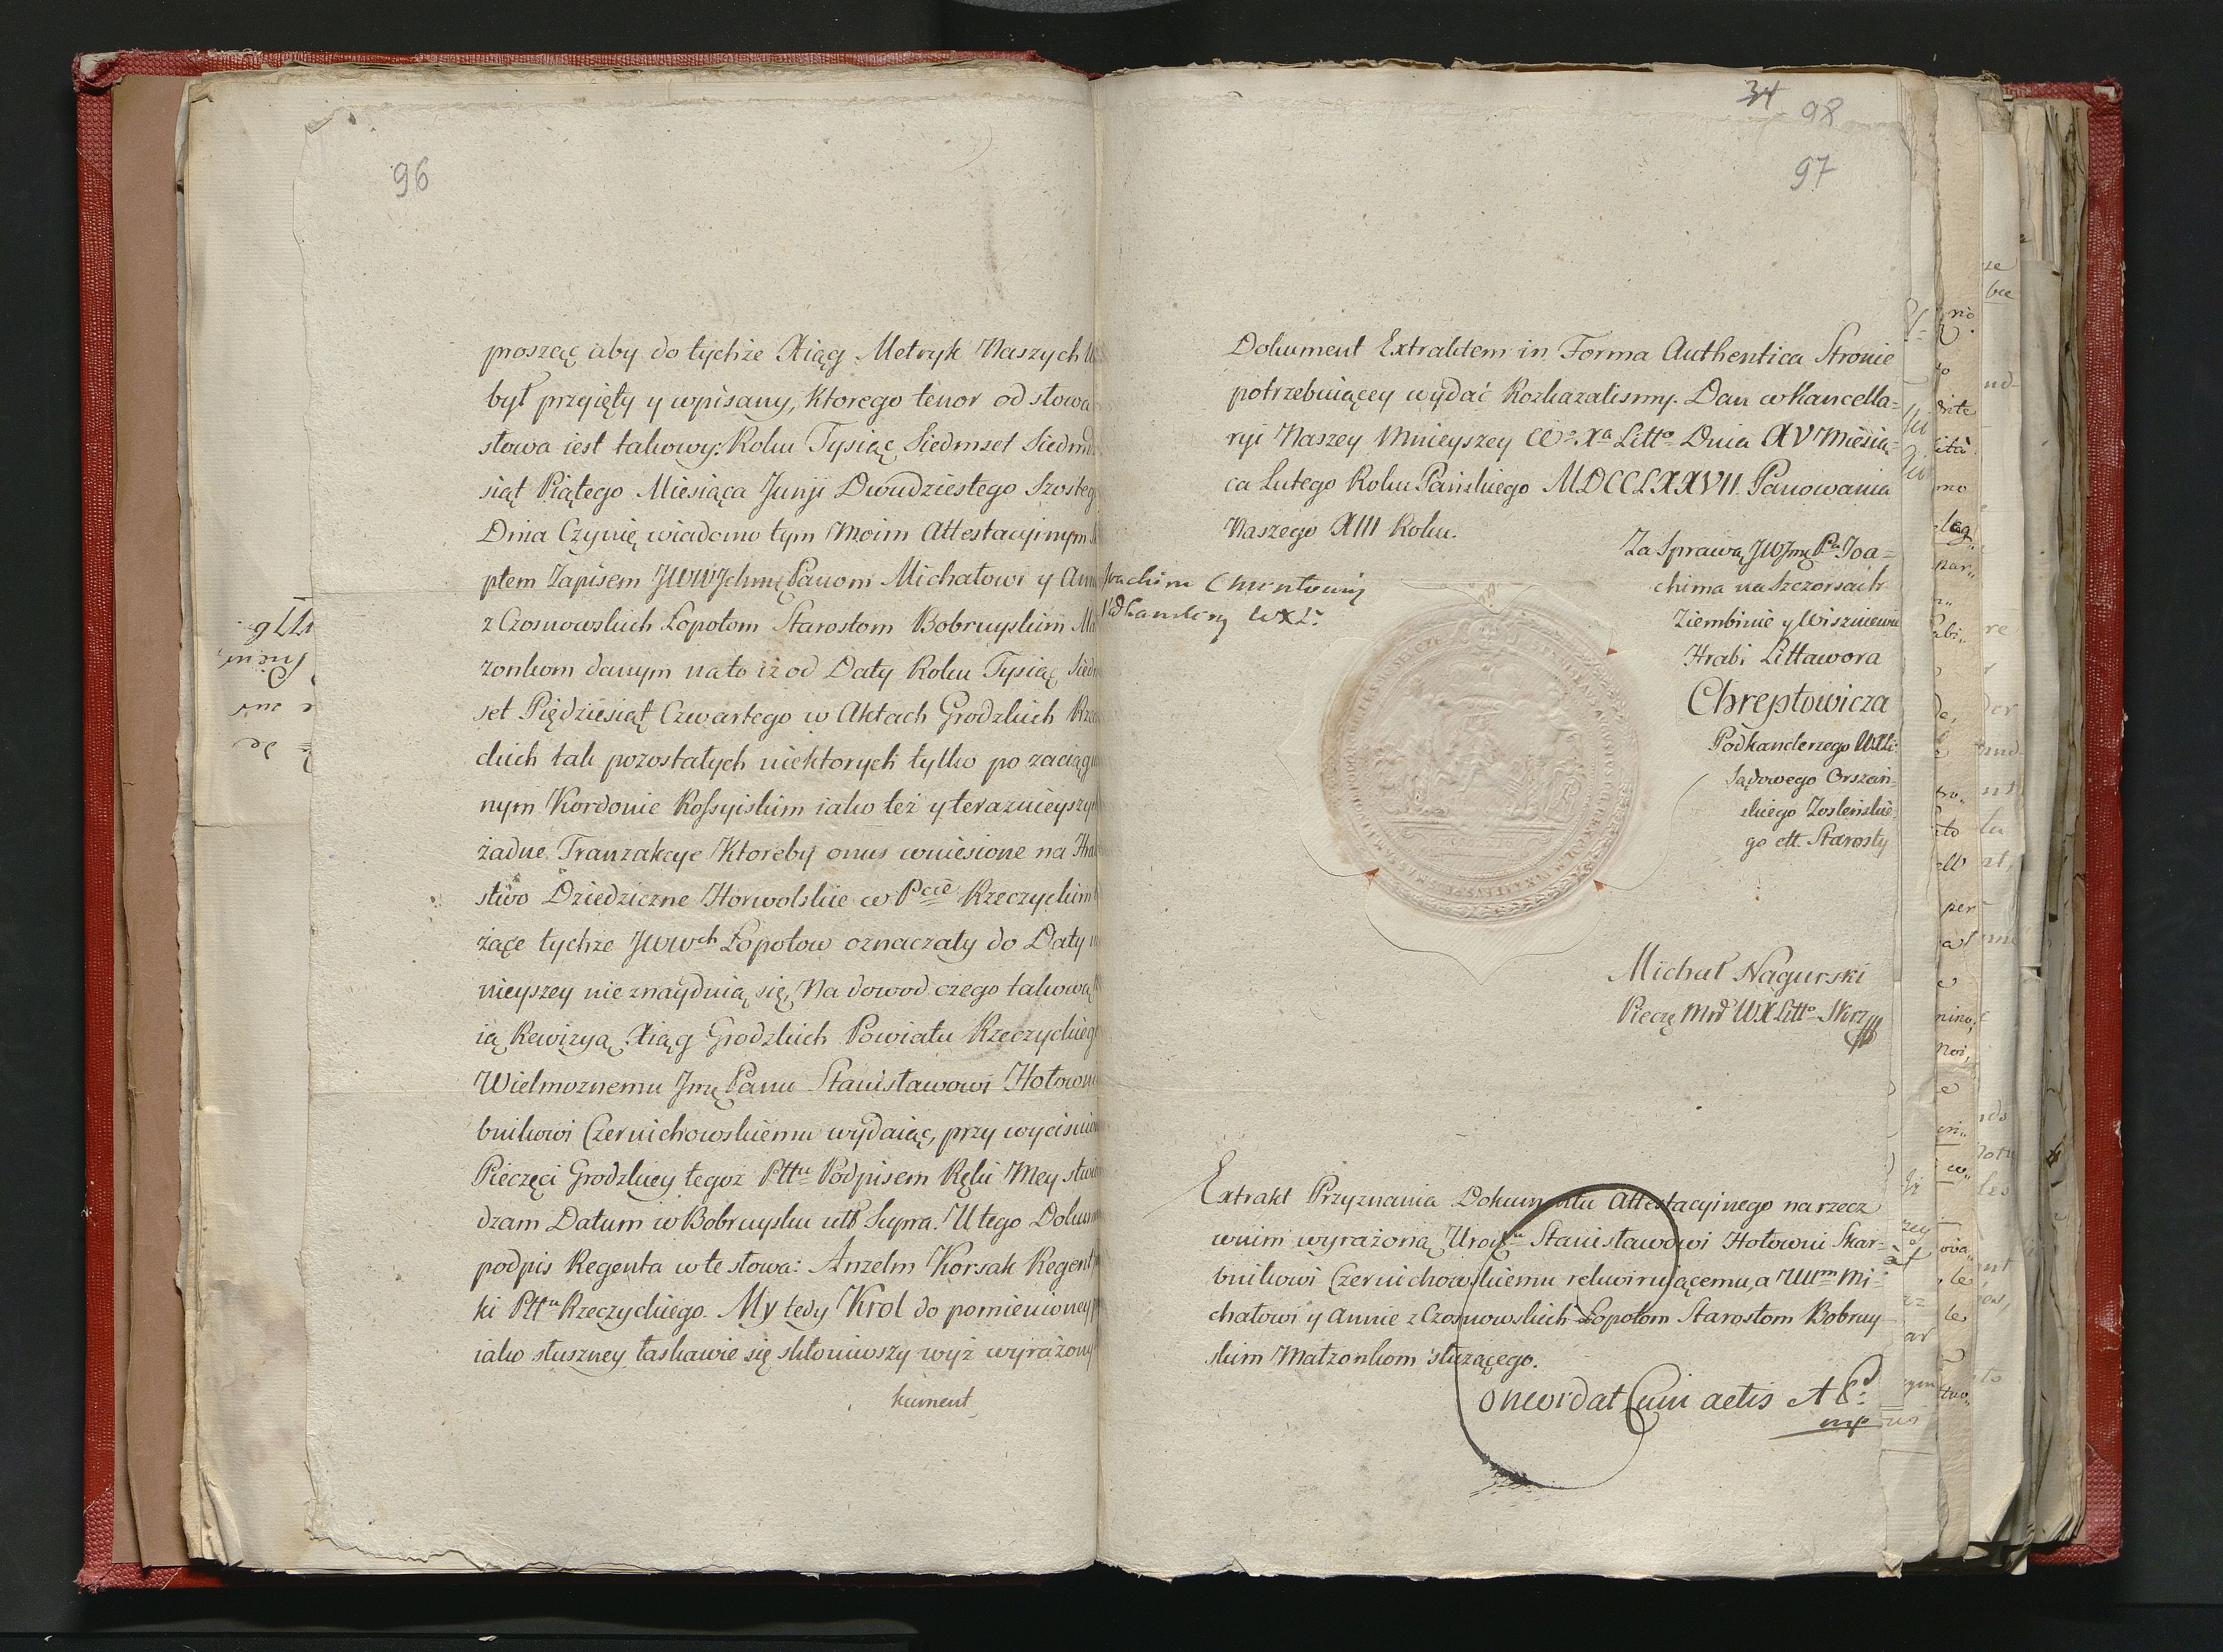 96
proszęc aby do tychże Xiąg Metryk Naszych
był przyięty y wpisany, Ktorego tenor od słowa
słowa iest takowy: Roku Tysiąc Siedmset Siedmd
siąt Piątego Miesiąca Junji Dwudziestego Szosteg
Dnia Czynię wiadomo tym Moim Attestacyinym
ptem Zapisem JWWJchmę Panom Michałowi y
z Czosnowskich Łopotom Starostom Bobruyskim
zonkom danym na to iż od Daty Roku Tysiąc Sied
set Piędziesiąt Czwartego w Aktach Grodzkich Rze
ckich tak pozostałych niektorych tylko po zaciągn
nym Kordonie Rossyiskim iako też y teraznieyszy
żadne Tranzakcye Ktoreby onus wniesione na Hra
stwo Dziedziczne Horwolskie w Pcie Rzeczyckim
żące tychże JWWch Łopotow oznaczały do Daty
nieyszey nie znayduią się, Na dowod czego takową
ią Rewizyą Xiąg Grodzkich Powiatu Rzeczyckieg
Wielmoznemu Jmę Panu Stanisławowi Hołown
bnikowi Czernichowskiemu wydaiąc, przy wyciśnio
Pieczęci Grodzkiey tegoz Pttu Podpisem Ręki Mey stwi
dzam Datum w Bobruysku utt Supra. U tego Dokum
podpis Regenta w te słowa: Anzelm Korsak Regent
ki Pttu Rzeczyckiego. My tedy Krol do pomienioney
iako słuszney łaskawie się skłoniwszy wyż wyrażony
kument
34
98
97
Dokument Extraktem in Forma Authentica Stronie
potrzebuiącey wydać Rozkazalismy. Dan w Kancella=
ryi Naszey Mnieyszey Wo Xa Litto Dnia XV Miesią=
ca Lutego Roku Pańskiego MDCCLXXVII. Panowania
Naszego XIII Roku.
Joachim Chreptowicz
Podkanclerzy WXL.
Za Sprawą JWJmę Pa Joa=
chima na Szczorsach
Ziembinie y Wiszniewie
Hrabi Littawora
Chreptowicza
Podkanclerzego WXLi
Sądowego Orszań=
skiego Zosleńskie=
go ett. Starosty
Michał Nagurski
Pieczę Mnd WX Litto Skrz
Extrakt Przyznania Dokumentu Attestacyinego na rzecz
wnim wyrażoną Urodu Stanisławowi Hołowni Skar=
bnikowi Czernichowskiemu rekwiruiącemu, a WWm Mi=
chałowi y Annie z Czosnowskich Łopotom Starostom Bobruy
skim Małzonkom służącego.
Concordat Cum actis
mp